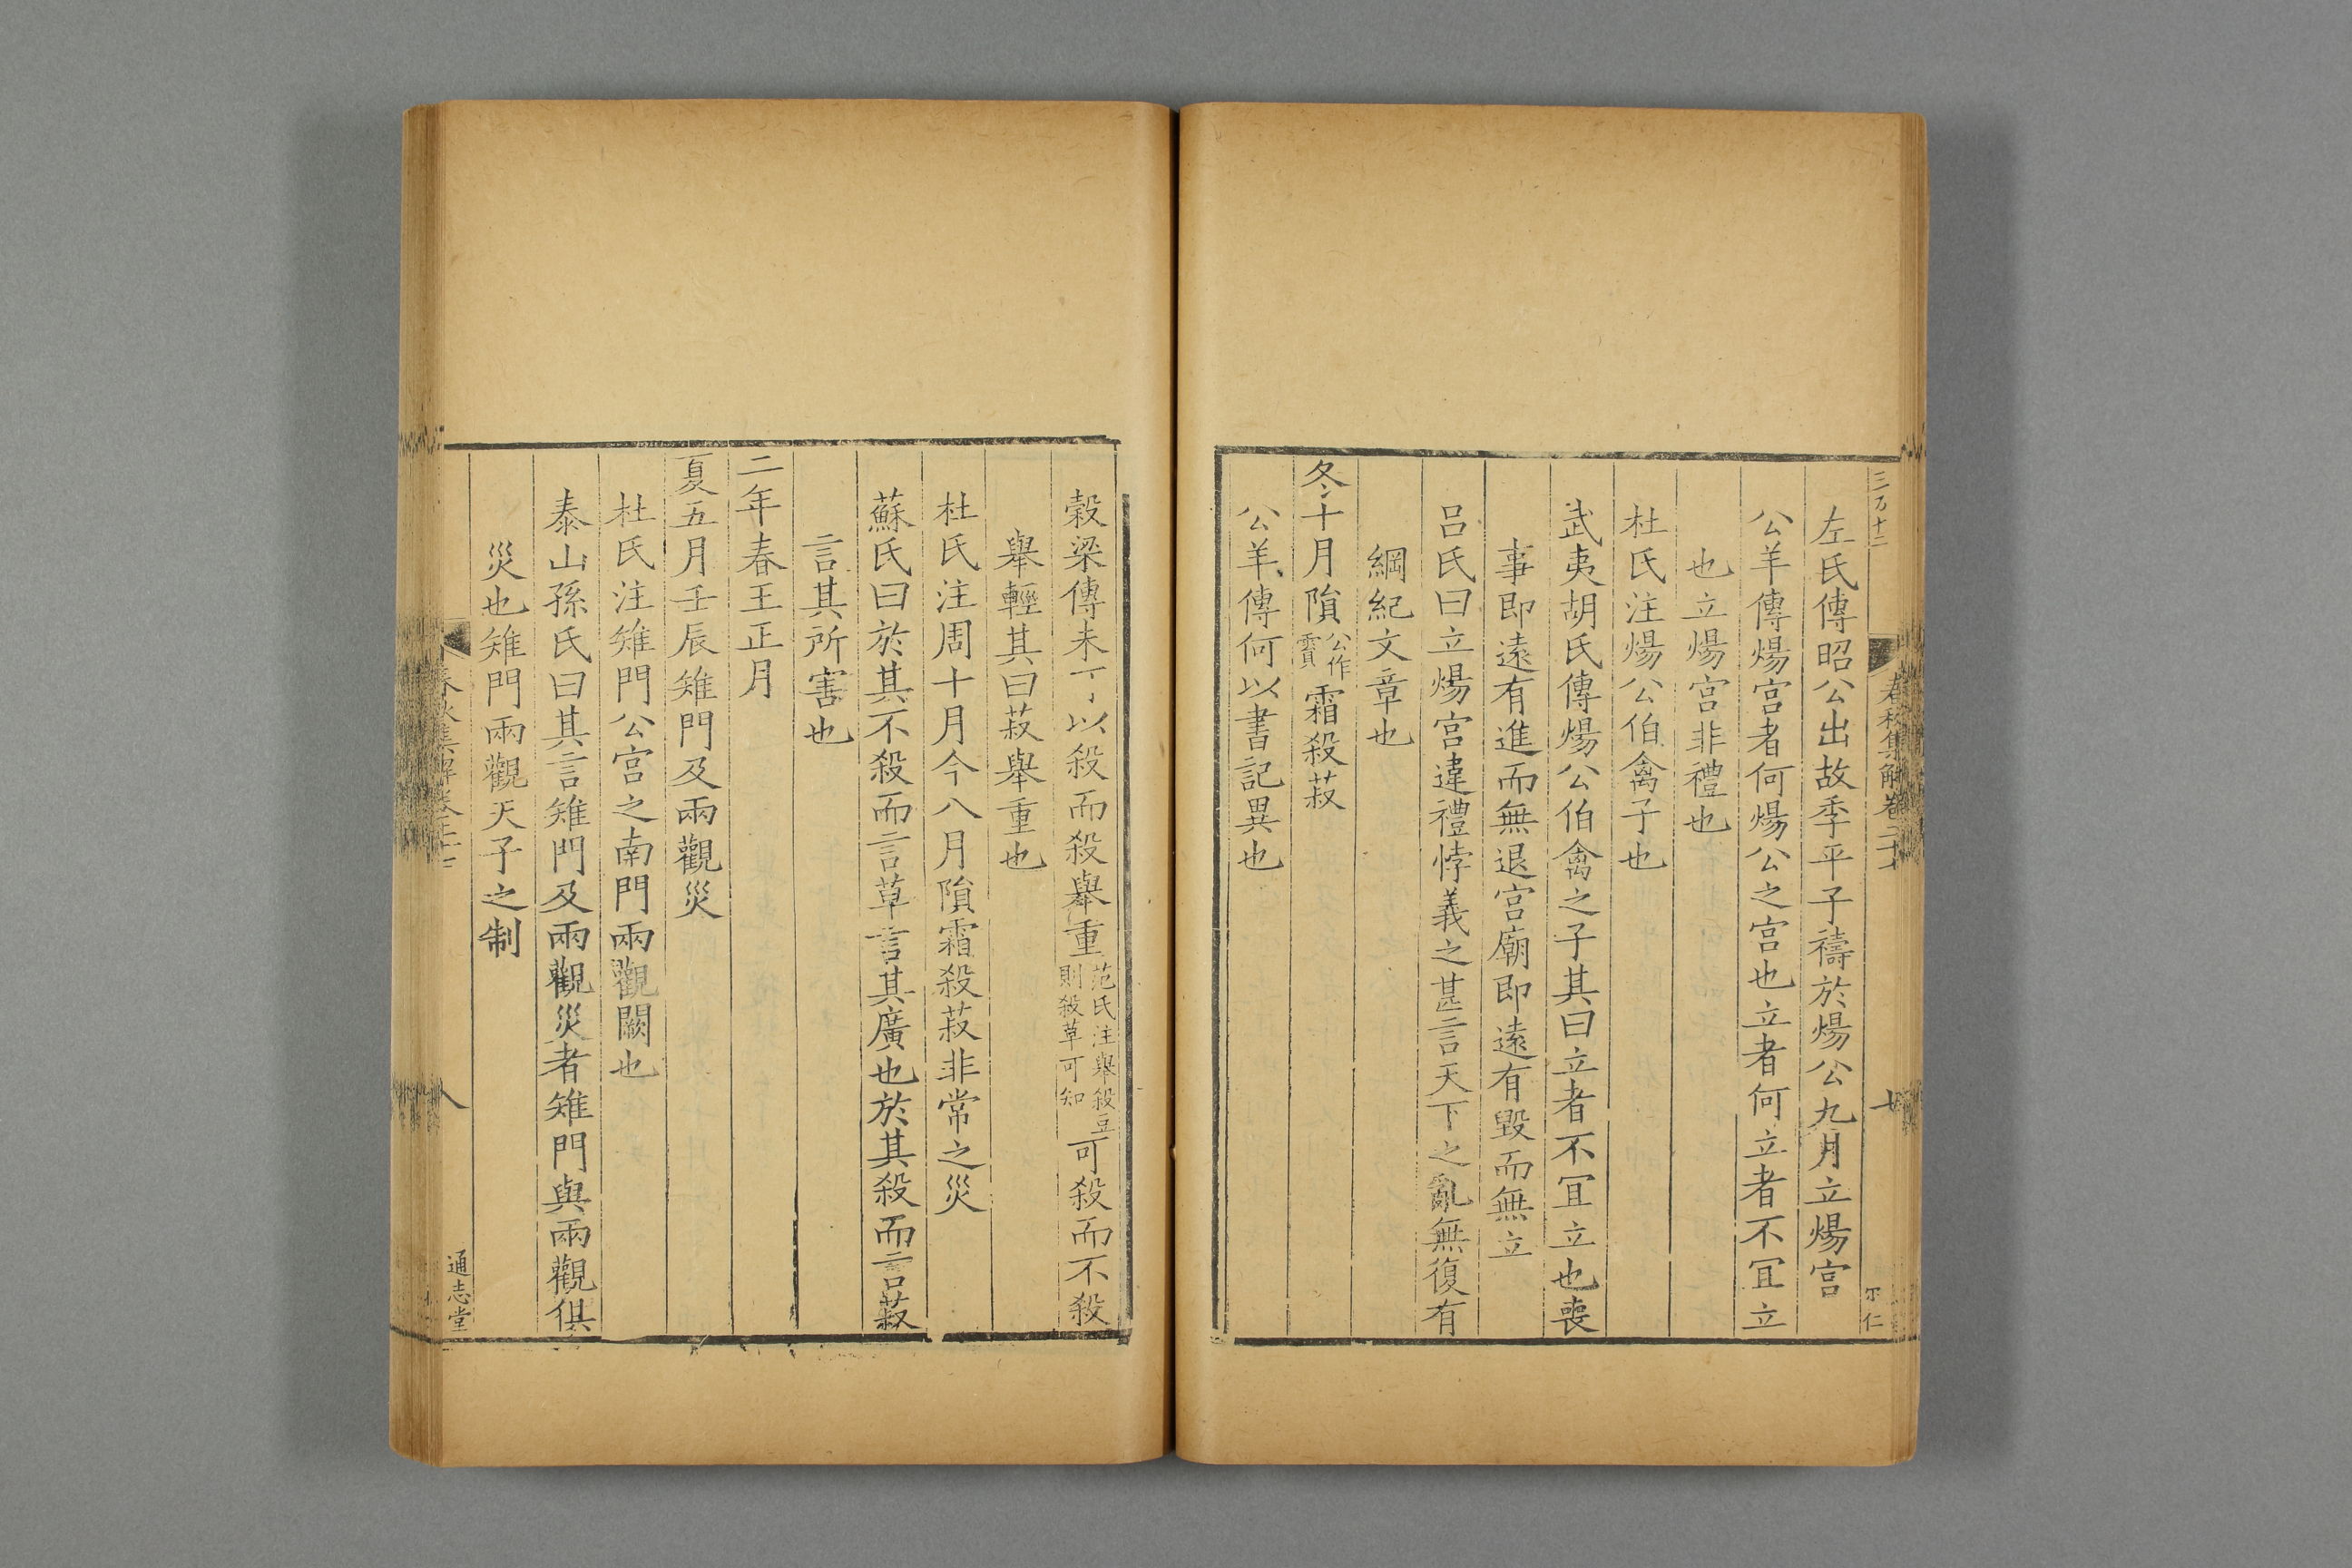 三万十二
春秋集解卷二十
七
尓仁
左氏傳昭公出故季平子禱於煬公九月立煬宮
公羊傳煬宮者何煬公之宮也立者何立者不冝立
也立煬宮非禮也
杜氏注煬公伯禽子也
武夷胡氏傳煬公伯禽之子其曰立者不冝立也喪
事即遠有進而無退宮廟即遠有毀而無立
吕氏曰立煬宮違禮悖義之甚言天下之亂無復有
綱紀文章也
冬十月隕公作霣霜殺菽
公羊傳何以書記異也
穀梁傳未可以殺而殺舉重范氏注舉殺豆則殺草可知可殺而不殺
舉輕其曰菽舉重也
杜氏注周十月今八月隕霜殺菽非常之災
蘇氏曰於其不殺而言草言其廣也於其殺而言菽
言其所害也
二年春王正月
夏五月壬辰雉門及兩觀災
杜氏注雉門公宮之南門兩觀闕也
泰山孫氏曰其言雉門及兩觀災者雉門與兩觀俱
災也雉門兩觀天子之制
春秋集解卷
八
通志堂